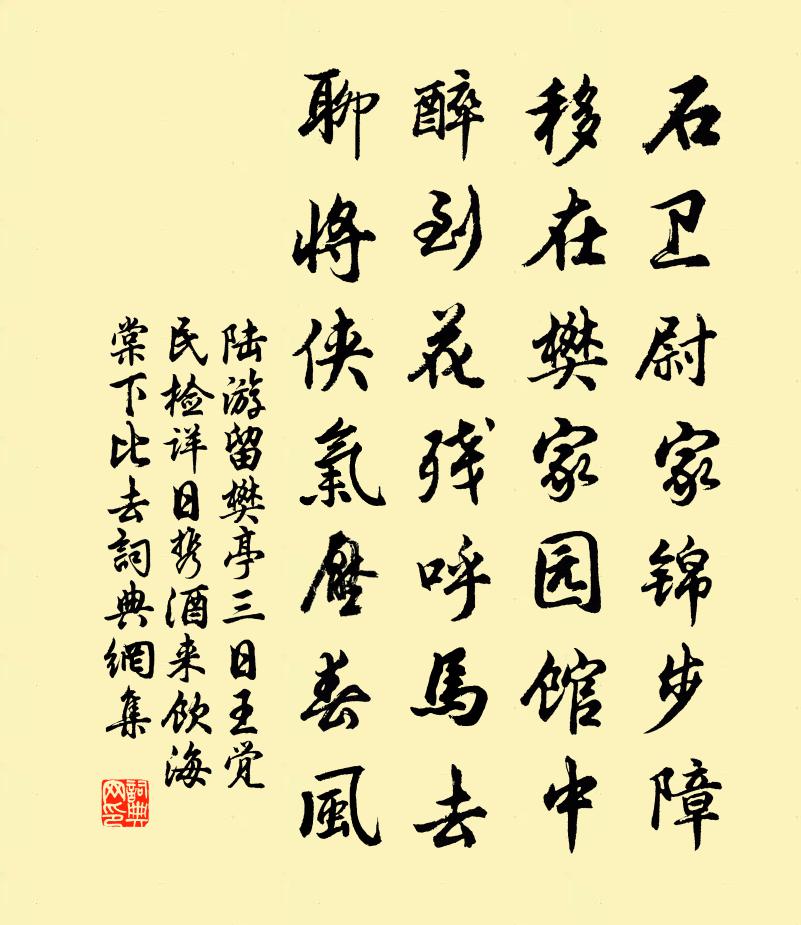 石卫尉家锦步障
移在樊家园馆中
醉到花残呼马去
聊将侠氣压春風
陆游留樊亭三日王觉
民检详日携酒来饮海
棠下比去詞典網集
詞典网印